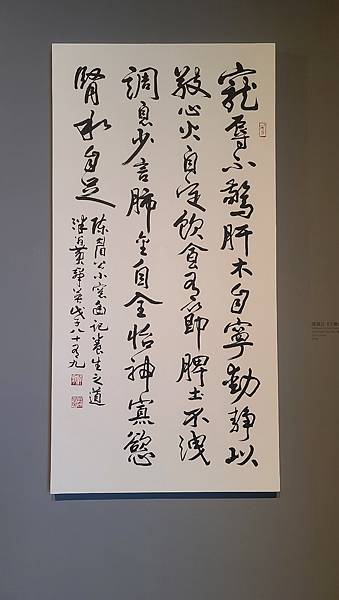 寵辱不驚肝木自寧動靜以
敬心火自定飲食有節脾土不洩
調息少言肺金自全怡神寡慾
腎水自足
陳眉公小窗幽記養生之道